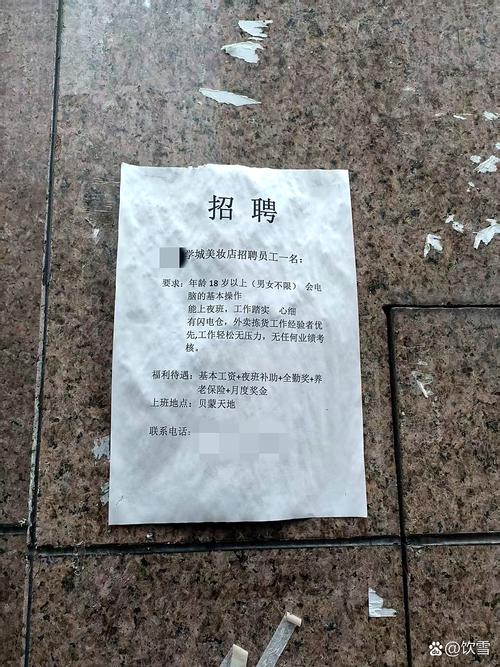 招 聘
学城美妆店招聘员工一名：
要求：年龄 18 岁以上（男女不限） 会电
脑的基本操作
能上夜班，工作踏实 心细
有闪电仓，外卖拣货工作经验者优
先,工作轻松无压力，无任何业绩考
核。
福利待遇：基本工资+夜班补助+全勤奖+养
老保险+月度奖金
上班地点：贝蒙天地
联系电话：
百度@饮雪